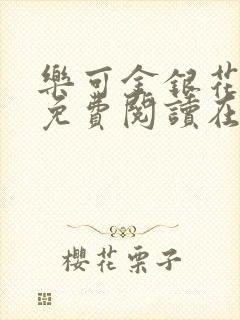 樂可金銀花
免費閱讀在
櫻花栗子